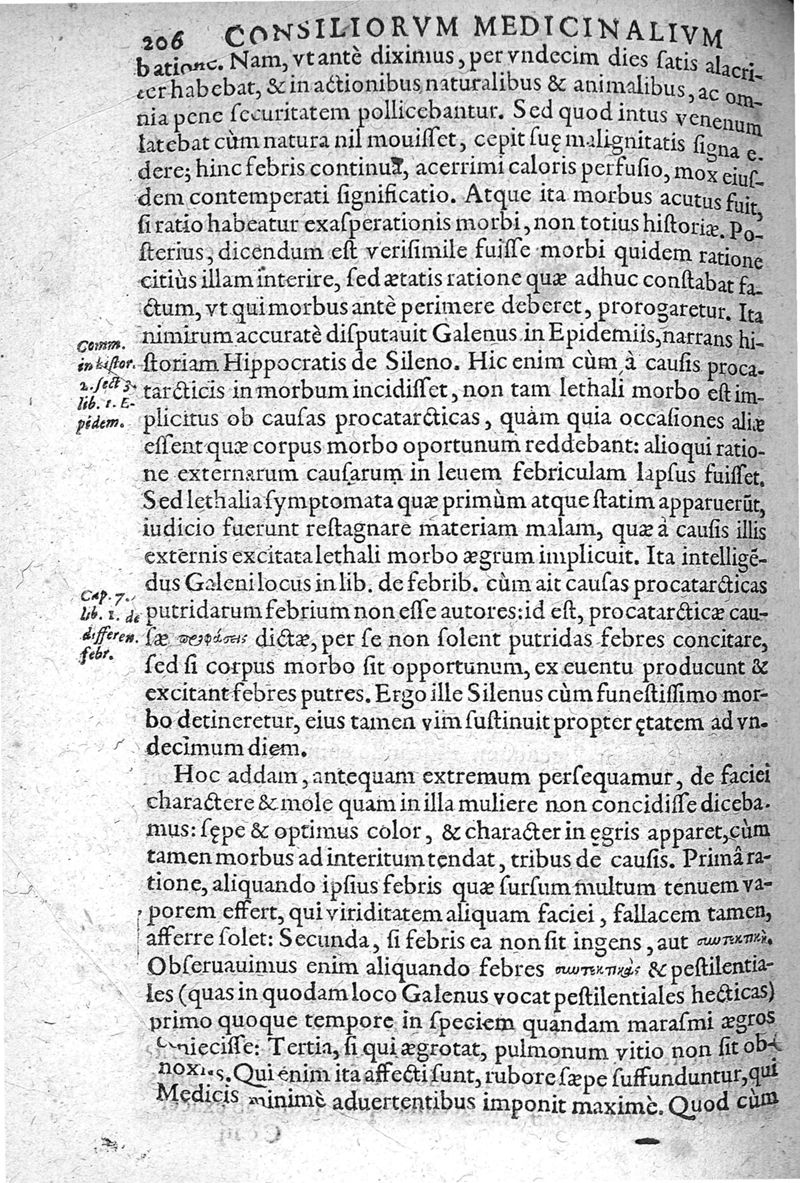 206 CONSILIORVM MEDICINALIVM
batione. Nam, vt antè diximus, per vndecim dies ſatis alacri-
ter habebat, & in actionibus naturalibus & animalibus, ac om-
nia pene ſecuritatem pollicebantur. Sed quod intus venenum
latebat cùm natura nil mouiſſet, cepit ſuę malignitatis ſigna e-
dere; hinc febris continua, acerrimi caloris perfuſio, mox eiuſ-
dem contemperati ſignificatio. Atque ita morbus acutus fuit,
ſi ratio habeatur exaſperationis morbi, non totius hiſtoriæ. Po-
ſterius, dicendum eſt veriſimile fuiſſe morbi quidem ratione
citiùs illam interire, ſed ætatis ratione quæ adhuc conſtabat fa-
ctum, vt qui morbus antè perimere deberet, prorogaretur. Ita
nimirum accuratè diſputauit Galenus in Epidemiis, narrans hi-
ſtoriam Hippocratis de Sileno. Hic enim cùm à cauſis proca-
tarcticis in morbum incidiſſet, non tam lethali morbo eſt im-
plicitus ob cauſas procatarcticas, quàm quia occaſiones aliæ
eſſent quæ corpus morbo oportunum reddebant: alioqui ratio-
ne externarum cauſarum in leuem febriculam lapſus fuiſſet.
Sed lethalia ſymptomata quæ primùm atque ſtatim apparuerūt,
iudicio fuerunt reſtagnare materiam malam, quæ à cauſis illis
externis excitata lethali morbo ægrum implicuit. Ita intelligē-
dus Galeni locus in lib. de febrib. cùm ait cauſas procatarcticas
putridatum febrium non eſſe autores: id eſt, procatarcticæ cau-
ſæ dictæ, per ſe non ſolent putridas febres concitare,
ſed ſi corpus morbo ſit opportunum, ex euentu producunt &
excitant febres putres. Ergo ille Silenus cùm funeſtiſſimo mor-
bo detineretur, eius tamen vim ſuſtinuit propter ętatem ad vn-
decimum diem.
Hoc addam, antequam extremum perſequamur, de faciei
charactere & mole quam in illa muliere non concidiſſe diceba-
mus: ſępe & optimus color, & character in ęgris apparet, cùm
tamen morbus ad interitum tendat, tribus de cauſis. Primâ ra-
tione, aliquando ipſius febris quæ ſurſum multum tenuem va-
porem effert, qui viriditatem aliquam faciei, fallacem tamen,
afferre ſolet: Secunda, ſi febris ea non ſit ingens, aut
Obſeruauimus enim aliquando febres & peſtilentia-
les (quas in quodam loco Galenus vocat peſtilentiales hecticas)
primo quoque tempore in ſpeciem quandam maraſmi ægros
conieciſſe: Tertia, ſi qui ægrotat, pulmonum vitio non ſit ob-
noxius. Qui enim ita affecti ſunt, rubore ſæpe ſuffunduntur, qui
Medicis minimè aduertentibus imponit maximè. Quod cùm
Comm.
in hiſtor.
2. ſect 3.
lib. 1. E-
pidem.
Cap. 7.
lib. 1. de
differen.
febr.